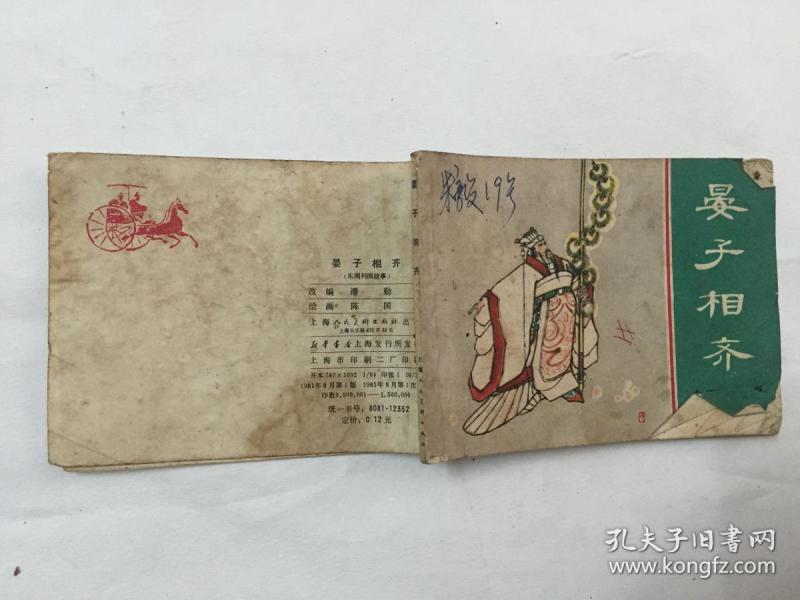 晏子相齐
(东周列国故事)
改编 潘勤
绘画 陈国
上海人民美术出版社出
上海长乐路672弄33号
新华书店上海发行所发
上海市印刷二厂印
开本787×1092 1/64 印张1 16/
1981年8月第1版 1981年8月第1次
印数0,000,001—1,500,000
统一书号:8081·12352
定价:0.12元
19号
晏子相齐
孔夫子旧书网
www.kongfz.com